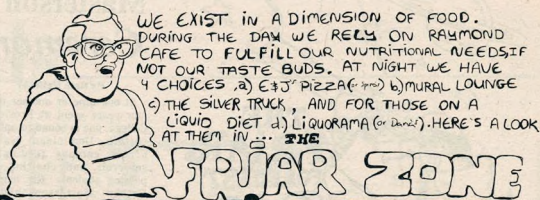 WE EXIST IN A DIMENSION OF FOOD.
DURING THE DAY WE RELY ON RAYMOND
CAFE TO FULFILL OUR NUTRITIONAL NEEDS, IF
NOT OUR TASTE BUDS. AT NIGHT WE HAVE
4 CHOICES, a) E&J'S PIZZA (or b) MURAL LOUNGE
c) THE SILVER TRUCK, AND FOR THOSE ON A
LIQUID DIET d) LIQUORAMA (or). HERE'S A LOOK
AT THEM IN ... THE
FRIAR ZONE